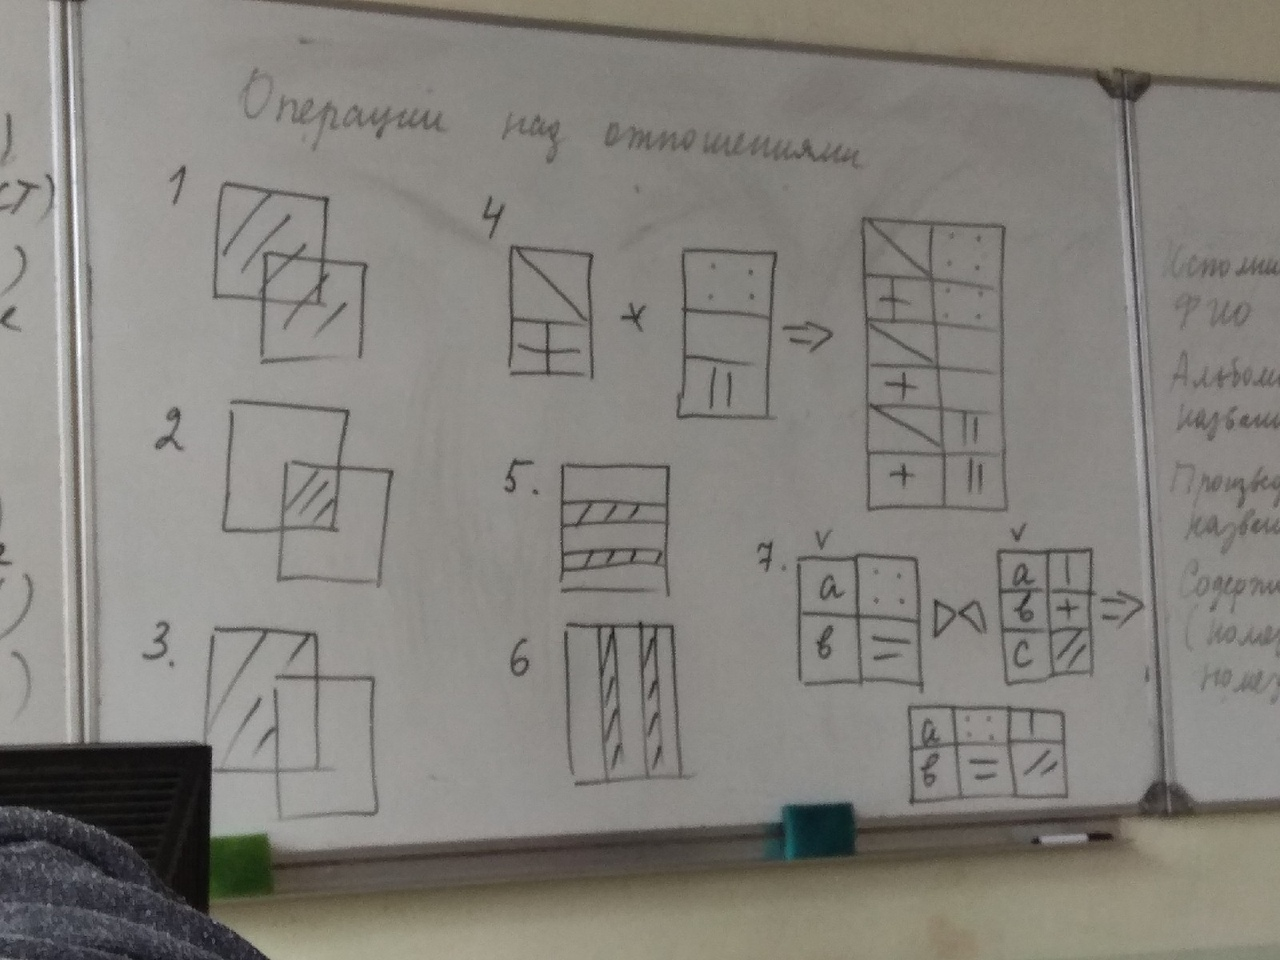 Операции над отношениями
1
2
3.
4
*
⇒
5.
6
7.
v
v
а
в
▷◁
а
в
с
⇒
а
в
ст)
Исполни
ФИО
Альбом
назван
Произвед
назван
Содерж
(номе
номе